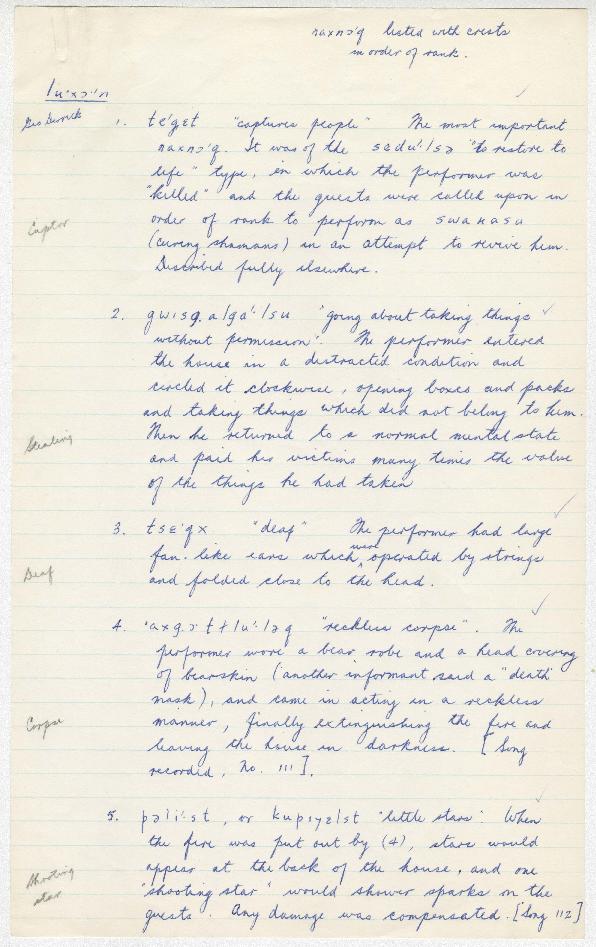 naxnɔ'q listed with crests
in order of rank.
lu·xɔ'·n
Geo Derrick
1. té'gɛt "captures people" The most important
naxnɔ'q. It was of the sɛdu'·lsə "to restore to
life" type, in which the performer was
"killed" and the guests were called upon in
order of rank to perform as swanasu
(curing shamans) in an attempt to revive him.
Described fully elsewhere.
Captor
2. gwısg.algá'·lsu "going about taking things
without permission". The performer entered
the house in a distracted condition and
circled it clockwise, opening boxes and packs
and taking things which did not belong to him.
Then he returned to a normal mental state
and paid his victims many times the value
of the things he had taken
Stealing
3. tsɛ'qx "deaf" The performer had large
fan-like ears which were operated by strings
and folded close to the head.
Deaf
4. 'axg.ɔtɫlu'·ləq "reckless corpse". The
performer wore a bear robe and a head covering
of bearskin (another informant said a "death
mask), and came in acting in a reckless
manner, finally extinguishing the fire and
leaving the house in darkness. [Song
recorded, No. 111].
Corpse
5. pəlí·st, or kupıyɛlst "little stars". When
the fire was put out by (4), stars would
appear at the back of the house, and one
"shooting star" would shower sparks on the
guests. Any damage was compensated. [Song 112]
Shooting
star